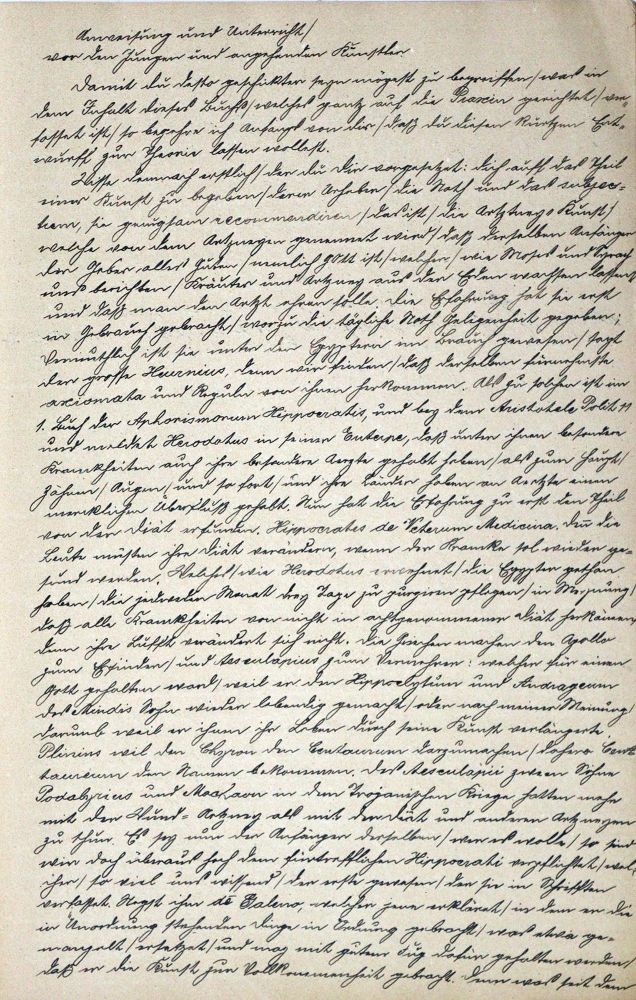 Anweisung und Unterricht/
vor den Jungen und angehenden Künstler
Damit du desto geschickter seyn mögest zu begreiffen/ was in
dem Inhalt dieses Buchs/ welches gantz auf die Praxin gerichtet/ ver-
fasset ist/ so begehre ich Anfangs von dir/ daß du diesen kurtzen Ent-
wurff zur Theorie lassen wollest.
Wisse demnach erstlich/ der du dir vorgesetzet: dich auff das Theil
einer Kunst zu begeben/ deren Urheber/ die Noth und das subjec-
tum, sie genugsam recommendiren/ das ist/ die Artzney-Kunst/
welche von dem Artzneyen genennet wird/ daß derselben Anfänger
der Geber alles Guten/ nemlich GOtt ist/ welcher/ wie Moses und Syrach
uns berichten/ Kräuter und Artzney aus der Erden wachsen lassen
und daß man den Artzt ehren solle. Die Erfahrung hat sie erst
in Gebrauch gebracht/ worzu die tägliche Noth Gelegenheit gegeben;
Vermuthlich ist sie unter den Egyptern im Brauch gewesen/ sagt
der grosse Heurnius, denn wir finden/ daß derselben fürnehmste
axiomata und Reguln von ihnen herkommen. Als zu sehen ist im
1. Buch der Aphorismorum Hippocratis, und bey dem Aristotele Polit 11
und meldet Herodotus in seiner Euterpe, daß unter ihnen besondere
Kranckheiten auch ihre besondere Aerzte gehabt haben/ als zum Haupt/
Zähnen/ Augen/ und so fort/ und ihre Länder haben an Aerzte einen
mercklichen Überfluß gehabt. Nun hat die Erfahrung zu erst den Theil
von der Diät erfunden. Hippocrates de Veterum Medicina. Denn die
Leute müsten ihre Diät verändern, wenn der Krancke sol wieder ge-
sund werden. Welches/ wie Herodotus erwehnet/ die Egypter gethan
haben/ die jedweden Monat drey Tage zu purgiren pflegen/ in Meynung/
daß alle Kranckheiten von nicht in acht genommener Diät herkämen
denn ihre Lufft verändert sich nicht. Die Griechen machen den Apollo
zum Erfinder/ und Aesculapius zum Vermehrer: welcher für einen
Gott gehalten ward/ weil er den Hippolytum und Andrageum
des Mindis Sohn wieder lebendig gemacht/ oder nach meiner Meinung/
darumb weil er ihnen ihr Leben durch seine Kunst verlängerte.
Plinius wil den Chyron den Centaurum darzumachen/ dahero Cent-
taureum den Namen bekommen. Des Aesculapii zween Söhne
Podalyrius und Machaon in dem Trojanischen Kriege hatten mehr
mit der Wund-Artzney als mit der Diät und anderen Artzneyen
zu thun. Es sey nun der Anfänger derselben/ wer es wolle/ so sind
wir doch überaus hoch dem fürtrefflichen Hippocrati verpflichtet/ wel-
cher/ so viel uns wissend/ der erste gewesen/ der sie in Schrifften
verfasset. Negst ihm de Galeno, welcher jene erkläret/ in dem er die
in Unordnung stehenden Dinge in Ordnung gebracht/ was etwa ge-
mangelt/ ersetzet/ und mag mit gutem Fug dafür gehalten werden/
daß er die Kunst zur Vollkommenheit gebracht. Denn was seit dem